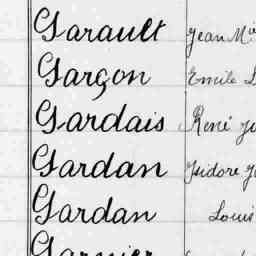 Garault Jean M
Garçon Emile
Gardais René
Gardan Isidore
Gardan Louis
Garnier